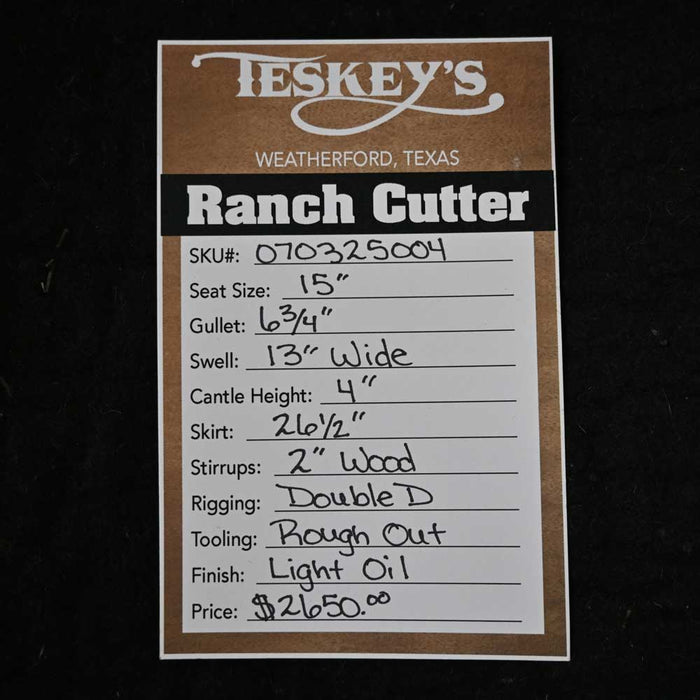 TESKEY'S
WEATHERFORD, TEXAS
Ranch Cutter
SKU#: 070325004
Seat Size: 15"
Gullet: 6 3/4"
Swell: 13" Wide
Cantle Height: 4"
Skirt: 26 1/2"
Stirrups: 2" Wood
Rigging: Double D
Tooling: Rough Out
Finish: Light Oil
Price: $2650.00